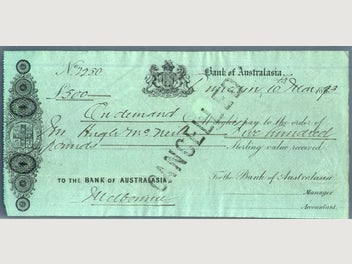 No 7250 Bank of Australasia.
£500 10th Mar
On demand pay to the order of
Hugh McNeil Five hundred
pounds Sterling value received.
CANCELLED
TO THE BANK OF AUSTRALASIA For the Bank of Australasia
Melbourne Manager
Accountant.